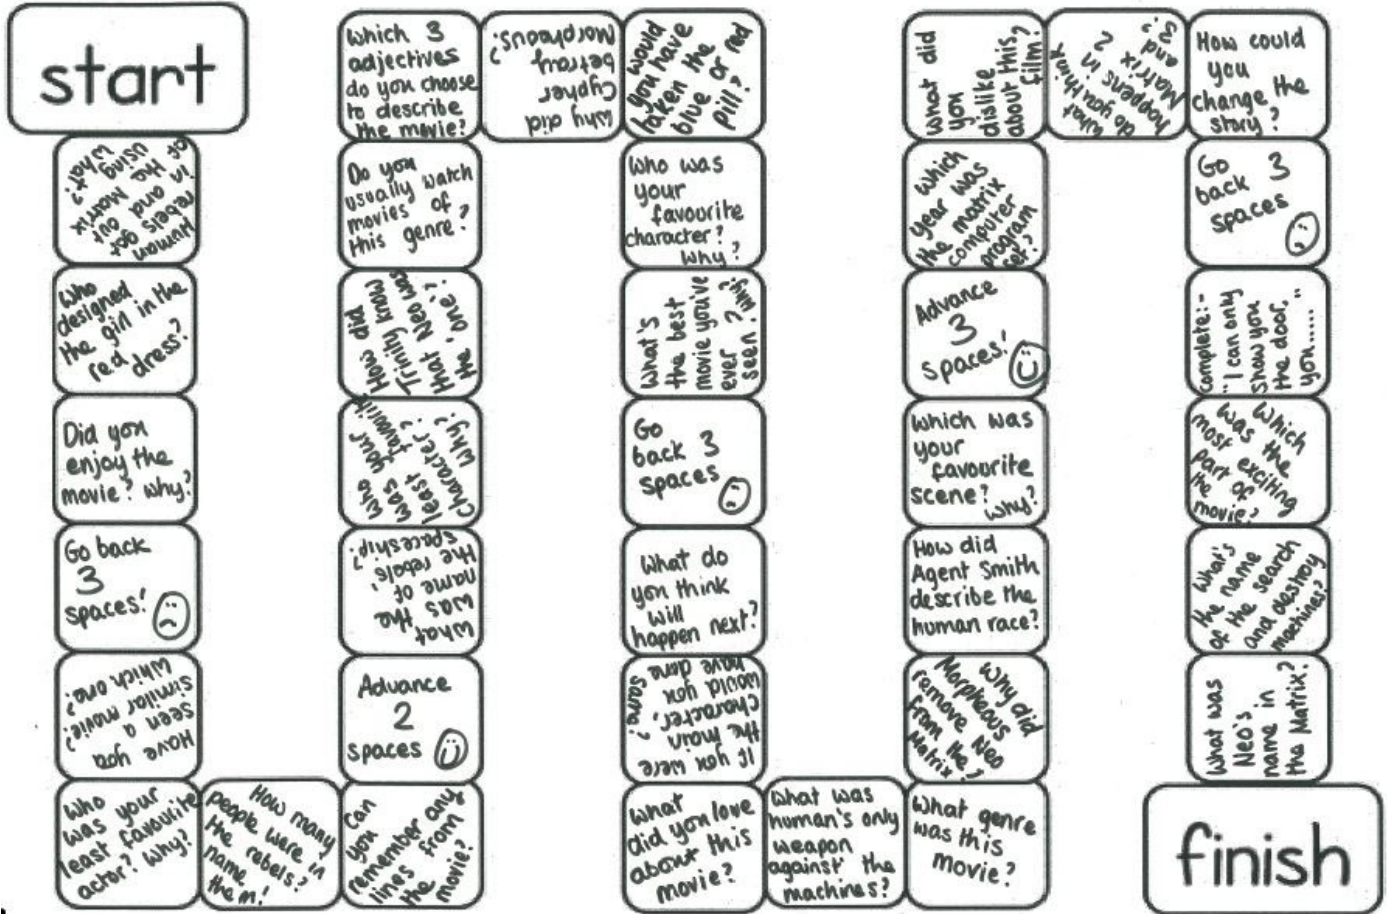 start
Human
rebels got
in and out
of the Matrix
using
what?
Who
designed
the girl in the
red dress?
Did you
enjoy the
movie? Why?
Go back
3
spaces!
Have you
seen a
similar movie?
Which one?
Who
was your
least favourite
actor? Why?
How many
people were in
the rebels?
name
them!
Can
you
remember any
lines from
the movie?
Advance
2
spaces
What
was the
name of
the rebels'
spaceship?
Who
was your
least favourite
character?
Why?
How did
Trinity know
that Neo was
the 'one'?
Do you
usually watch
movies of
this genre?
Which 3
adjectives
do you choose
to describe
the movie?
Why did
Cypher
betray
Morpheous?
Would
you have
taken the
blue or red
pill?
Who was
your
favourite
character?
Why?
What's
the best
movie you've
ever
seen? Why?
Go
back 3
spaces
What do
you think
will
happen next?
If you were
the main
character,
would you
have done same?
What
did you love
about this
movie?
What was
human's only
weapon
against the
machines?
What genre
was this
movie?
Why did
Morpheous
remove Neo
from the
Matrix?
How did
Agent Smith
describe the
human race?
Which was
your
favourite
scene?
Why?
Advance
3
spaces!
Which
year was
the matrix
computer
program
set?
What did
you
dislike
about this
film?
What
do you think
happens in
Matrix 2
and 3?
How could
you
change the
story?
Go
back 3
spaces
Complete:-
"I can only
show you
the door,
you......"
Which
was the
most exciting
part of
the
movie?
What's
the name
of the search
and destroy
machines?
What was
Neo's
name in
the Matrix?
finish